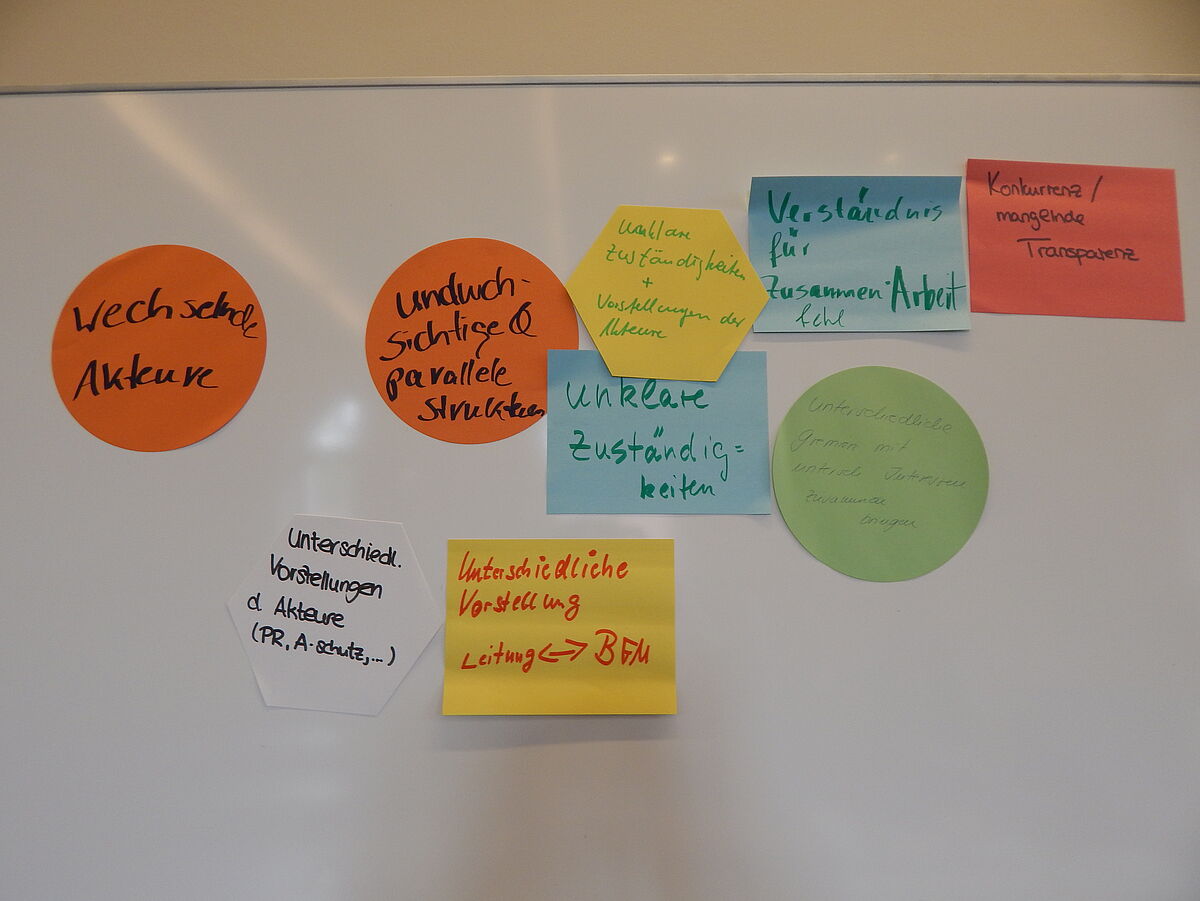 Wechselnde
Akteure
Undurch-
sichtige &
parallele
Strukturen
Unklare
Zuständigkeiten
+
Vorstellungen der
Akteure
Verständnis
für
Zusammen-Arbeit
fehlt
Konkurrenz /
mangelnde
Transparenz
Unklare
Zuständig=
keiten
Unterschiedliche
Gremien mit
untersch. Interessen
zusammen
bringen
Unterschiedl.
Vorstellungen
d. Akteure
(PR, A-schutz,...)
Unterschiedliche
Vorstellung
Leitung <-> BGM